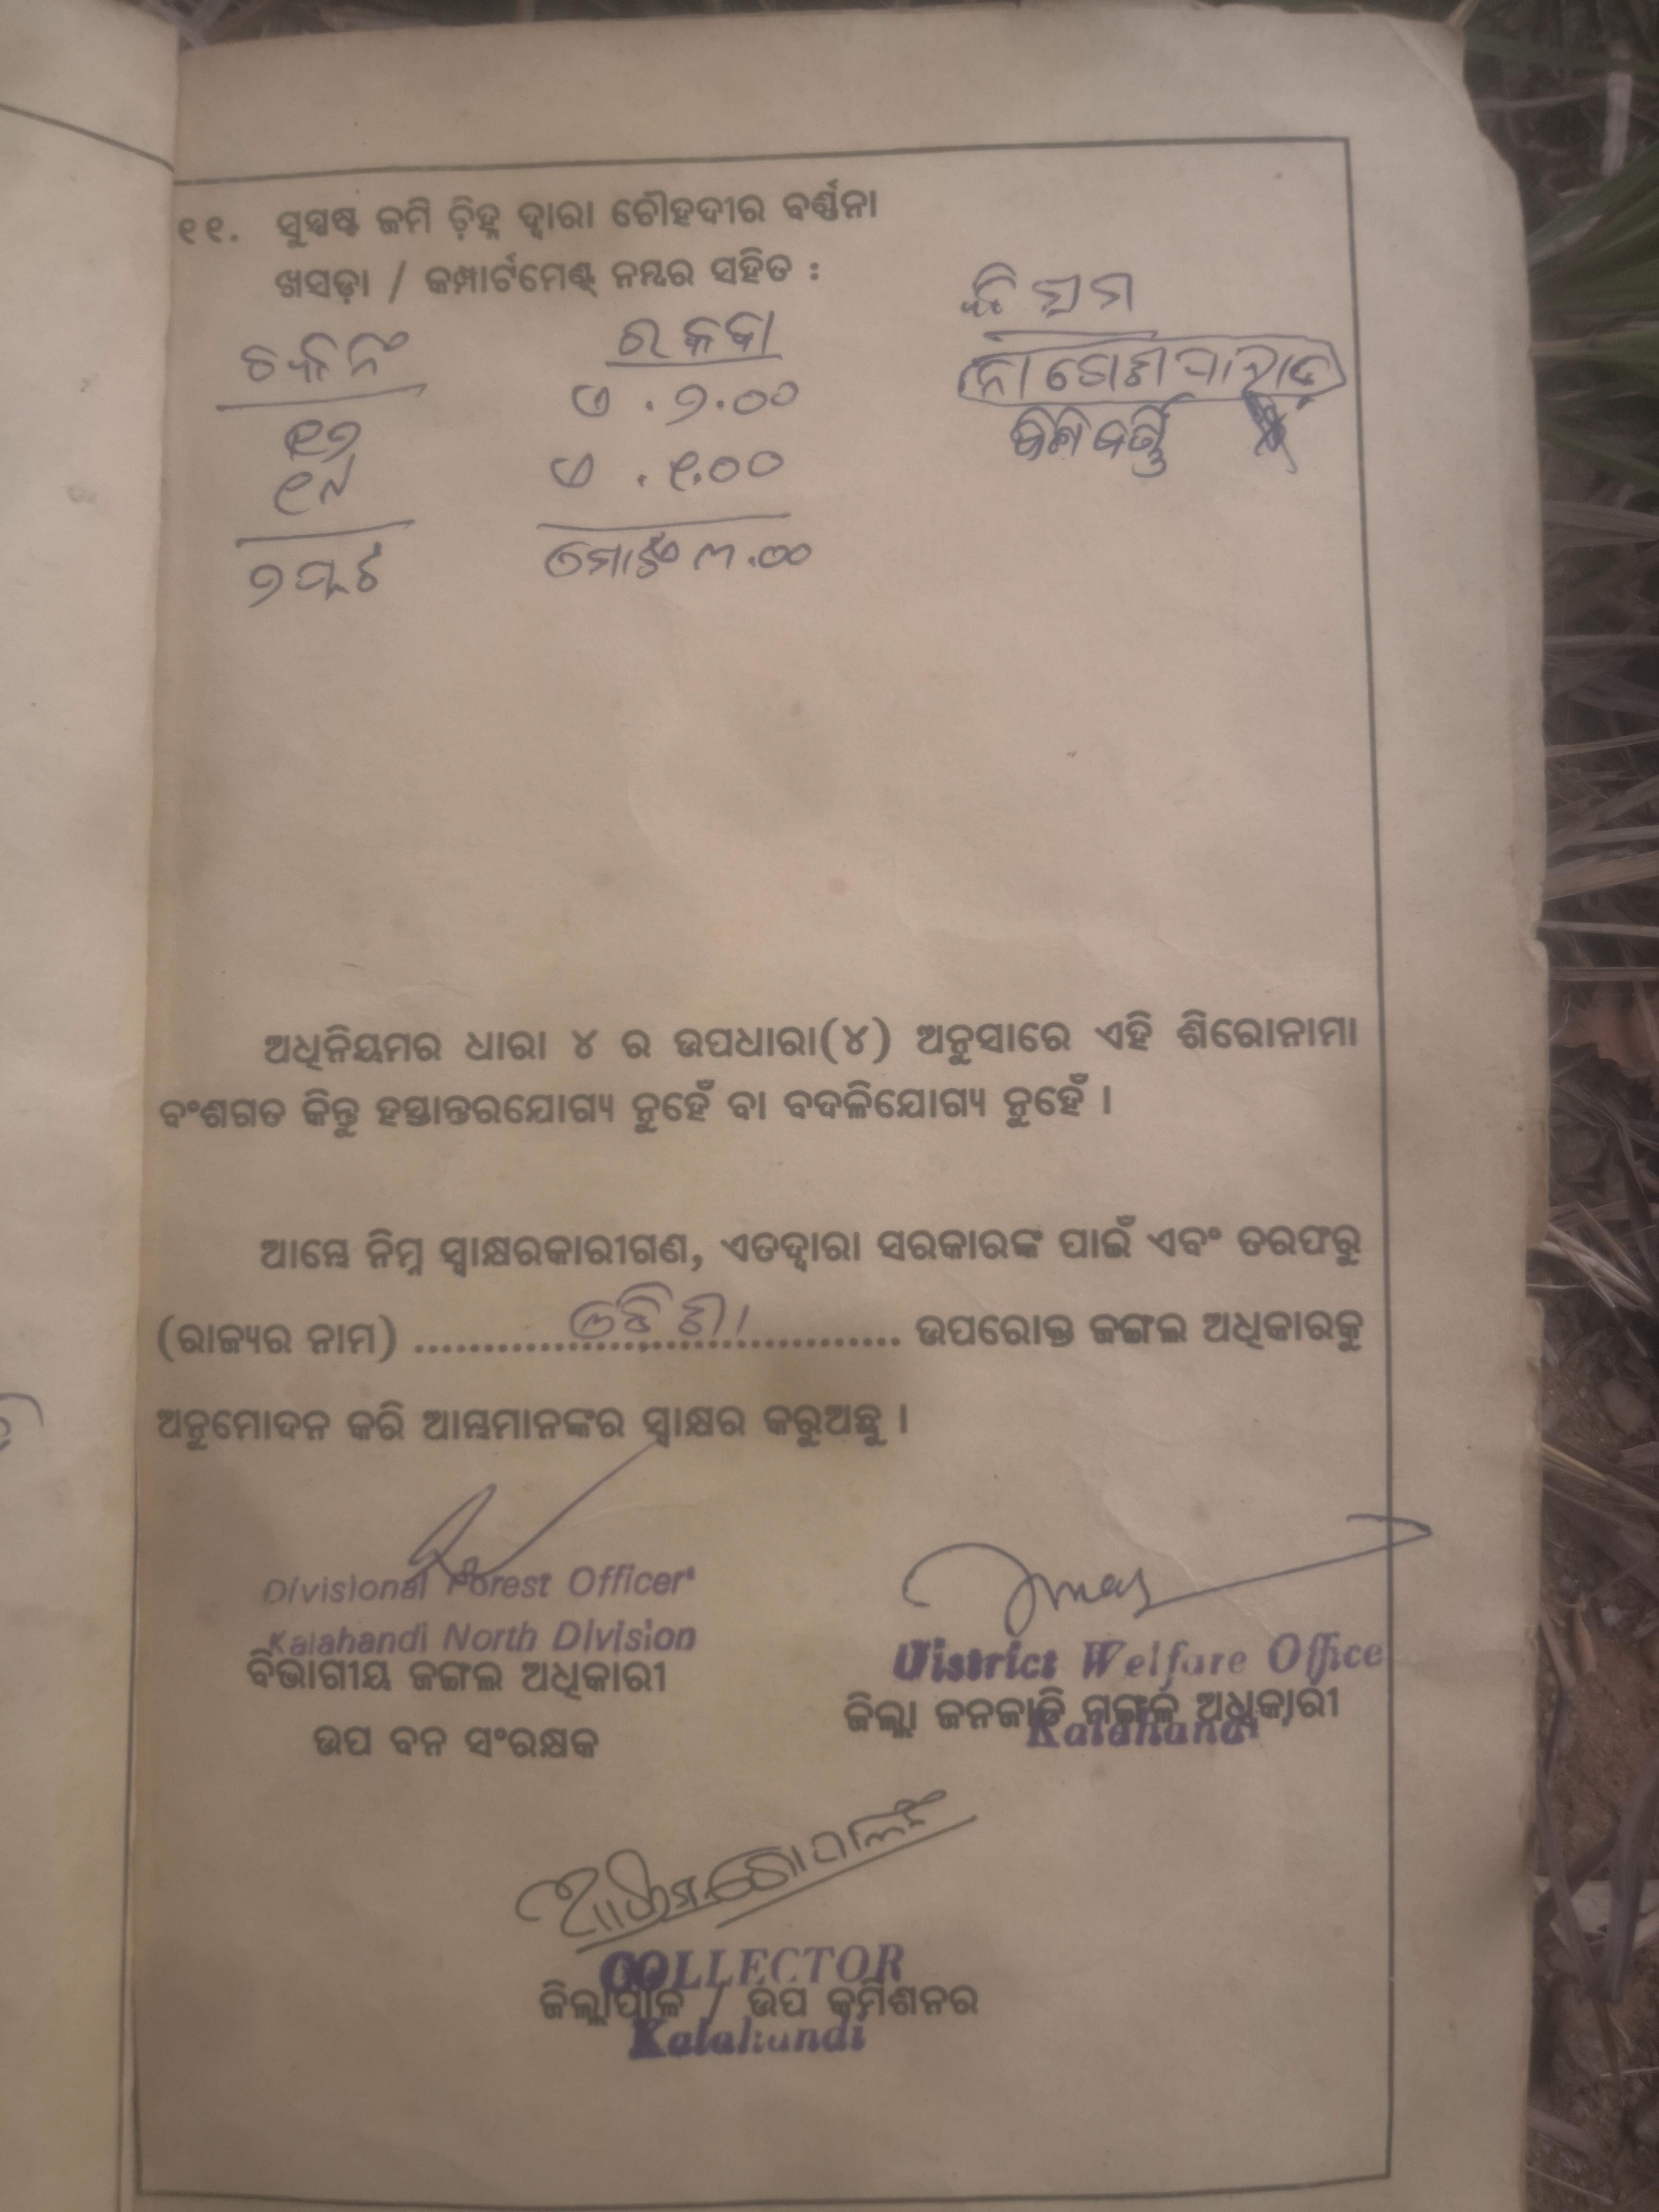 ୧୧. ସୁସ୍ପଷ୍ଟ ଜମି ଚ଼ିହ୍ନ ଦ୍ଵାରା ଚୌହଦୀର ବର୍ଣ୍ଣନା
ଖସଡ଼ା / କମ୍ପାର୍ଟମେଣ୍ଟ୍ ନମ୍ବର ସହିତ :
ରକବା
୧୭ ଏ . ୨.୦୦
୧୯ ଏ . ୧.୦୦
୨ ପ୍ଲଟ ମୋଟ ଏ ୩.୦୦
କିସମ
ଅଧିନିୟମର ଧାରା ୪ ର ଉପଧାରା(୪) ଅନୁସାରେ ଏହି ଶିରୋନାମା
ବଂଶଗତ କିନ୍ତୁ ହସ୍ତାନ୍ତରଯୋଗ୍ୟ ନୁହେଁ ବା ବଦଳିଯୋଗ୍ୟ ନୁହେଁ ।
ଆମ୍ଭେ ନିମ୍ନ ସ୍ଵାକ୍ଷରକାରୀଗଣ, ଏତଦ୍ଵାରା ସରକାରଙ୍କ ପାଇଁ ଏବଂ ତରଫରୁ
(ରାଜ୍ୟର ନାମ) .......... ଓଡିଶା .......... ଉପରୋକ୍ତ ଜଙ୍ଗଲ ଅଧିକାରକୁ
ଅନୁମୋଦନ କରି ଆମ୍ଭମାନଙ୍କର ସ୍ଵାକ୍ଷର କରୁଅଛୁ ।
Divisional Forest Officer
Kalahandi North Division
ବିଭାଗୀୟ ଜଙ୍ଗଲ ଅଧିକାରୀ
ଉପ ବନ ସଂରକ୍ଷକ
District Welfare Office
ଜିଲ୍ଲା ଜନଜାତି ମଙ୍ଗଳ ଅଧିକାରୀ
Kalahandi
COLLECTOR
ଜିଲ୍ଲାପାଳ / ଉପ କମିଶନର
Kalahandi